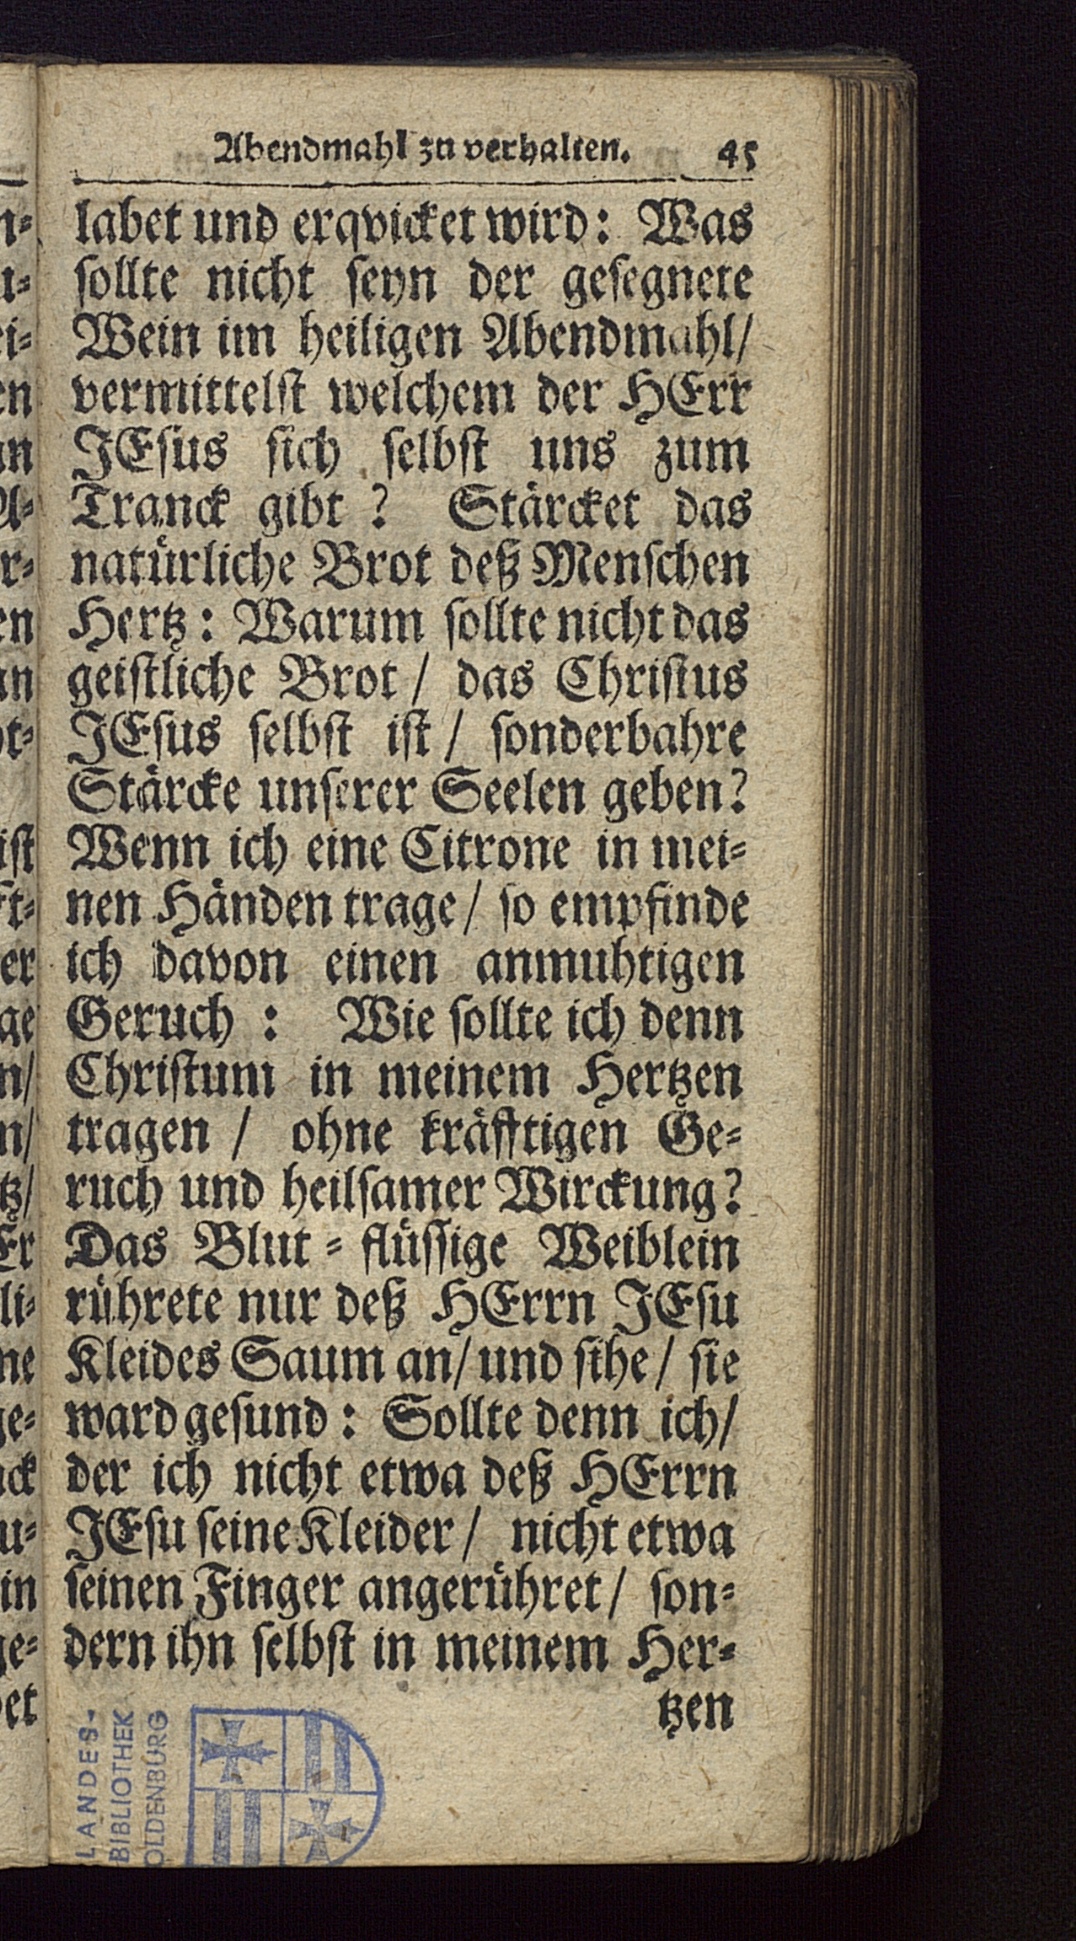 Abendmahl zu verhalten. 45
labet und erqvicket wird: Was
ſollte nicht ſeyn der geſegnete
Wein im heiligen Abendmahl/
vermittelſt welchem der HErr
JEſus ſich ſelbſt uns zum
Tranck gibt? Stärcket das
natürliche Brot deß Menſchen
Hertz: Warum ſollte nicht das
geiſtliche Brot/ das Chriſtus
JEſus ſelbſt iſt/ ſonderbahre
Stärcke unſerer Seelen geben?
Wenn ich eine Citrone in mei-
nen Händen trage/ ſo empfinde
ich davon einen anmuhtigen
Geruch: Wie ſollte ich denn
Chriſtum in meinem Hertzen
tragen/ ohne kräfftigen Ge-
ruch und heilſamer Wirckung?
Das Blut-flüſſige Weiblein
rührete nur deß HErrn JEſu
Kleides Saum an/ und ſihe/ ſie
ward geſund: Sollte denn ich/
der ich nicht etwa deß HErrn
JEſu ſeine Kleider/ nicht etwa
ſeinen Finger angerühret/ ſon-
dern ihn ſelbſt in meinem Her-
tzen
LANDES-
BIBLIOTHEK
OLDENBURG